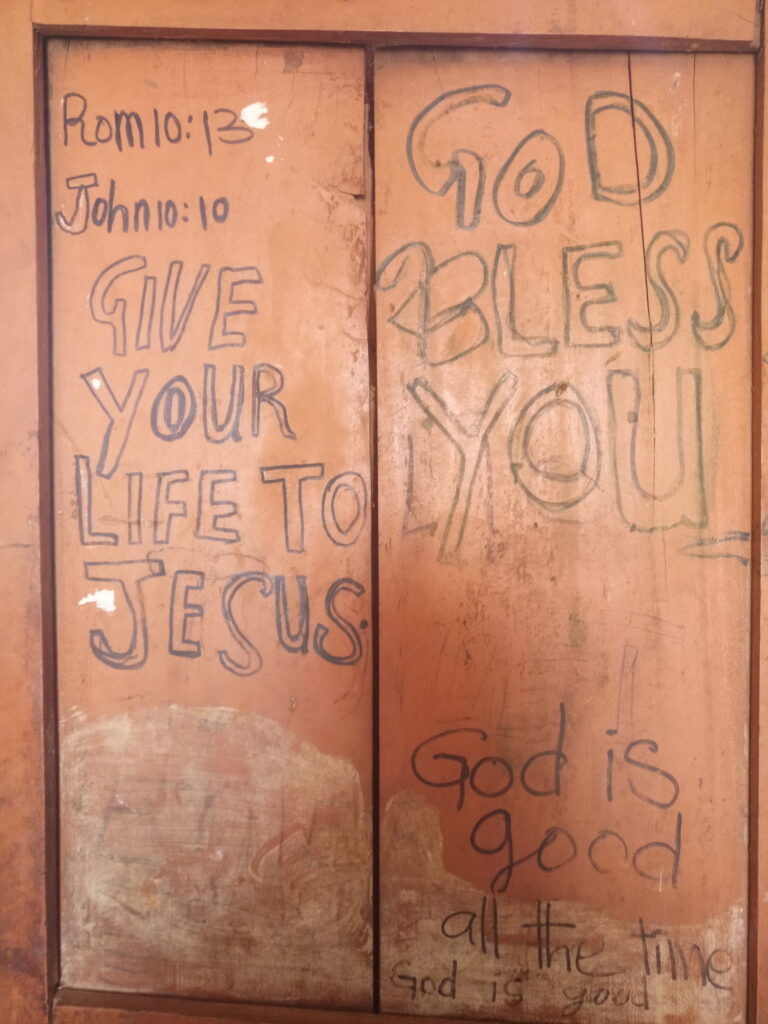 Rom 10:13
John 10:10
GIVE
YOUR
LIFE TO
JESUS.
GOD
BLESS
YOU
God is
good
all the time
God is good